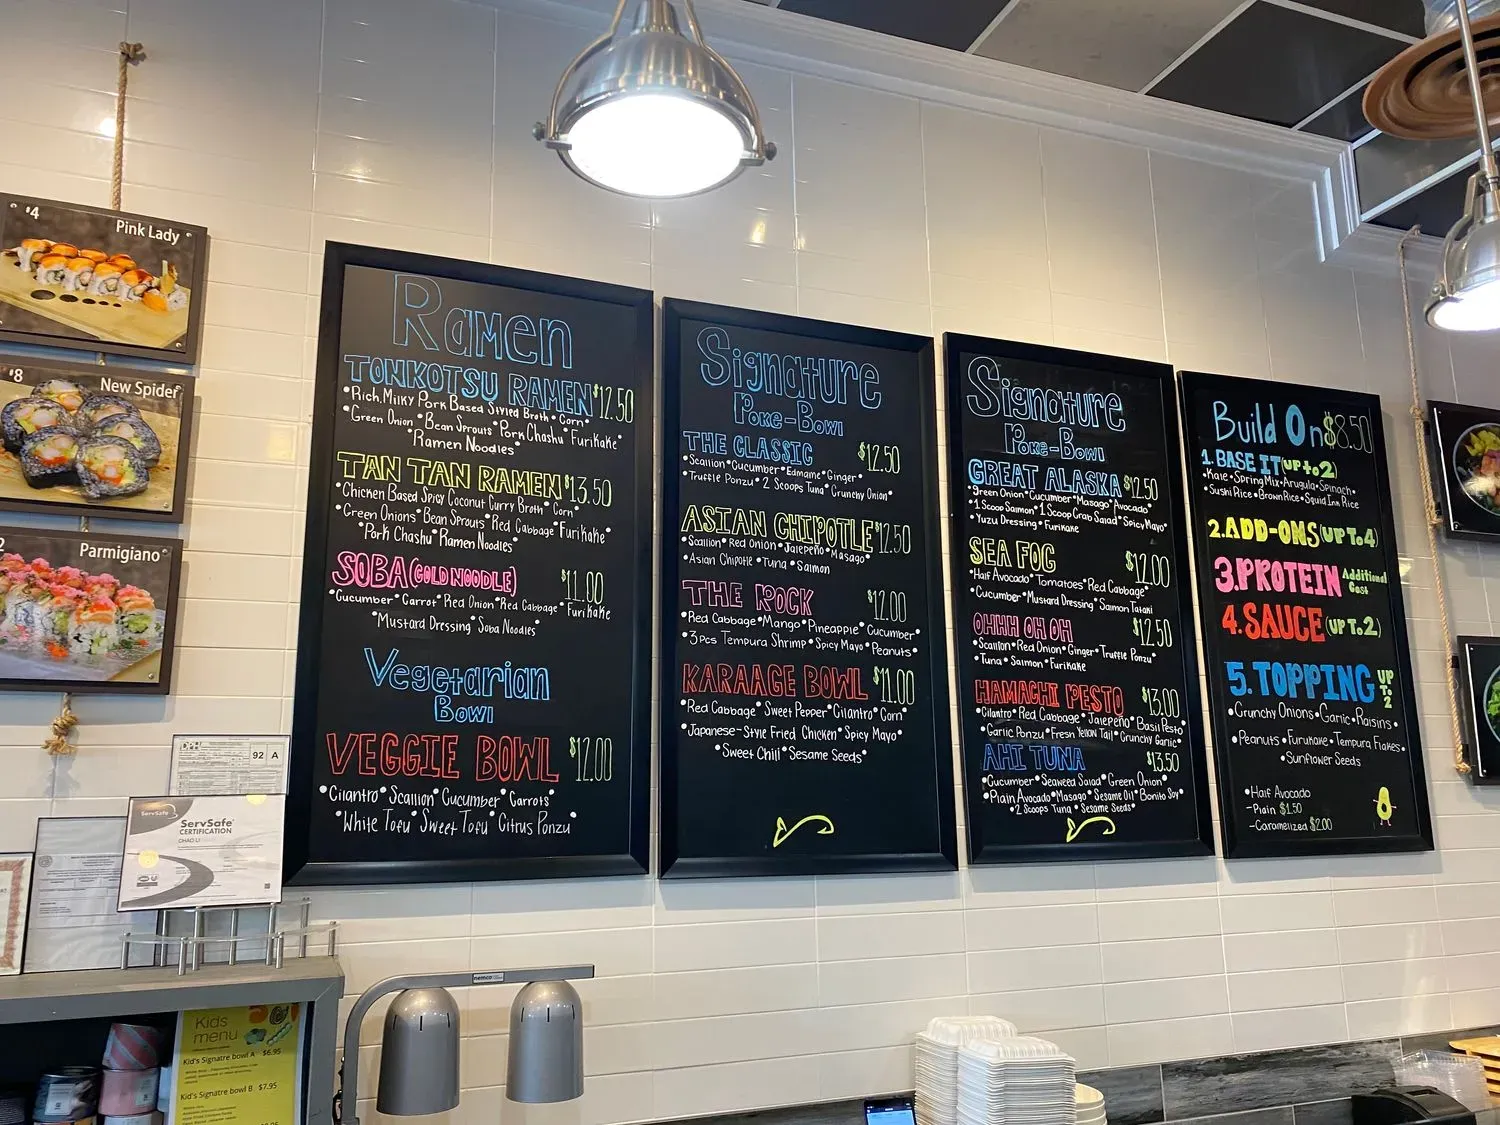 #4 Pink Lady
#8 New Spider
Parmigiano
Ramen
TONKOTSU RAMEN $12.50
•Rich, Milky Pork Based Styled Broth •Corn•
•Green Onion •Bean Sprouts •Pork Chashu •Furikake•
•Ramen Noodles•
TAN TAN RAMEN $13.50
•Chicken Based Spicy Coconut Curry Broth •Corn•
•Green Onions •Bean Sprouts •Red Cabbage •Furikake•
•Pork Chashu •Ramen Noodles•
SOBA (COLD NOODLE) $11.00
•Cucumber •Carrot •Red Onion •Red Cabbage •Furikake
•Mustard Dressing •Soba Noodles•
Vegetarian
Bowl
VEGGIE BOWL $12.00
•Cilantro •Scallion •Cucumber •Carrots•
•White Tofu •Sweet Tofu •Citrus Ponzu•
Signature
Poke-Bowl
THE CLASSIC $12.50
•Scallion •Cucumber •Edmame •Ginger•
•Truffle Ponzu •2 Scoops Tuna •Crunchy Onion•
ASIAN CHIPOTLE $12.50
•Scallion •Red Onion •Jalepeño •Masago•
•Asian Chipotle •Tuna •Salmon
THE ROCK $12.00
•Red Cabbage •Mango •Pineapple •Cucumber•
•3pcs Tempura Shrimp •Spicy Mayo •Peanuts•
KARAAGE BOWL $11.00
•Red Cabbage •Sweet Pepper •Cilantro •Corn•
•Japanese-Style Fried Chicken •Spicy Mayo•
•Sweet Chili •Sesame Seeds•
Signature
Poke-Bowl
GREAT ALASKA $12.50
•Green Onion •Cucumber •Masago •Avocado•
•1 Scoop Salmon •1 Scoop Crab Salad •Spicy Mayo•
•Yuzu Dressing •Furikake
SEA FOG $12.00
•Half Avocado •Tomatoes •Red Cabbage•
•Cucumber •Mustard Dressing •Salmon Tataki
OHHH OH OH $12.50
•Scallion •Red Onion •Ginger •Truffle Ponzu•
•Tuna •Salmon •Furikake
HAMACHI PESTO $13.00
•Cilantro •Red Cabbage •Jalepeño •Basil Pesto•
•Garlic Ponzu •Fresh Yellow Tail •Crunchy Garlic•
AHI TUNA $13.50
•Cucumber •Seaweed Salad •Green Onion•
•Plain Avocado •Masago •Sesame Oil •Bonito Soy•
•2 Scoops Tuna •Sesame Seeds•
Build On $8.50
1. BASE IT (UP to 2)
•Kale •Spring Mix •Arugula •Spinach•
•Sushi Rice •Brown Rice •Squid Ink Rice
2. ADD-ONS (UP To 4)
3. PROTEIN Additional Cost
4. SAUCE (UP To 2)
5. TOPPING UP To 2
•Crunchy Onions •Garlic •Raisins•
•Peanuts •Furukake •Tempura Flakes•
•Sunflower Seeds
•Half Avocado
-Plain $1.50
-Caramelized $2.00
DPH
92 A
ServSafe
ServSafe
CERTIFICATION
CHAO LI
nemco
Kids
menu
Kid's Signatre bowl A $6.95
Kid's Signatre bowl B $7.95